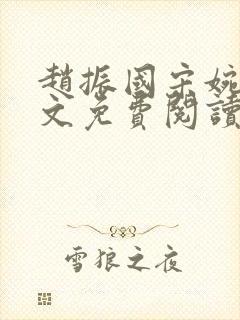 趙振國宋婉
文免費閱讀
雪狼之夜